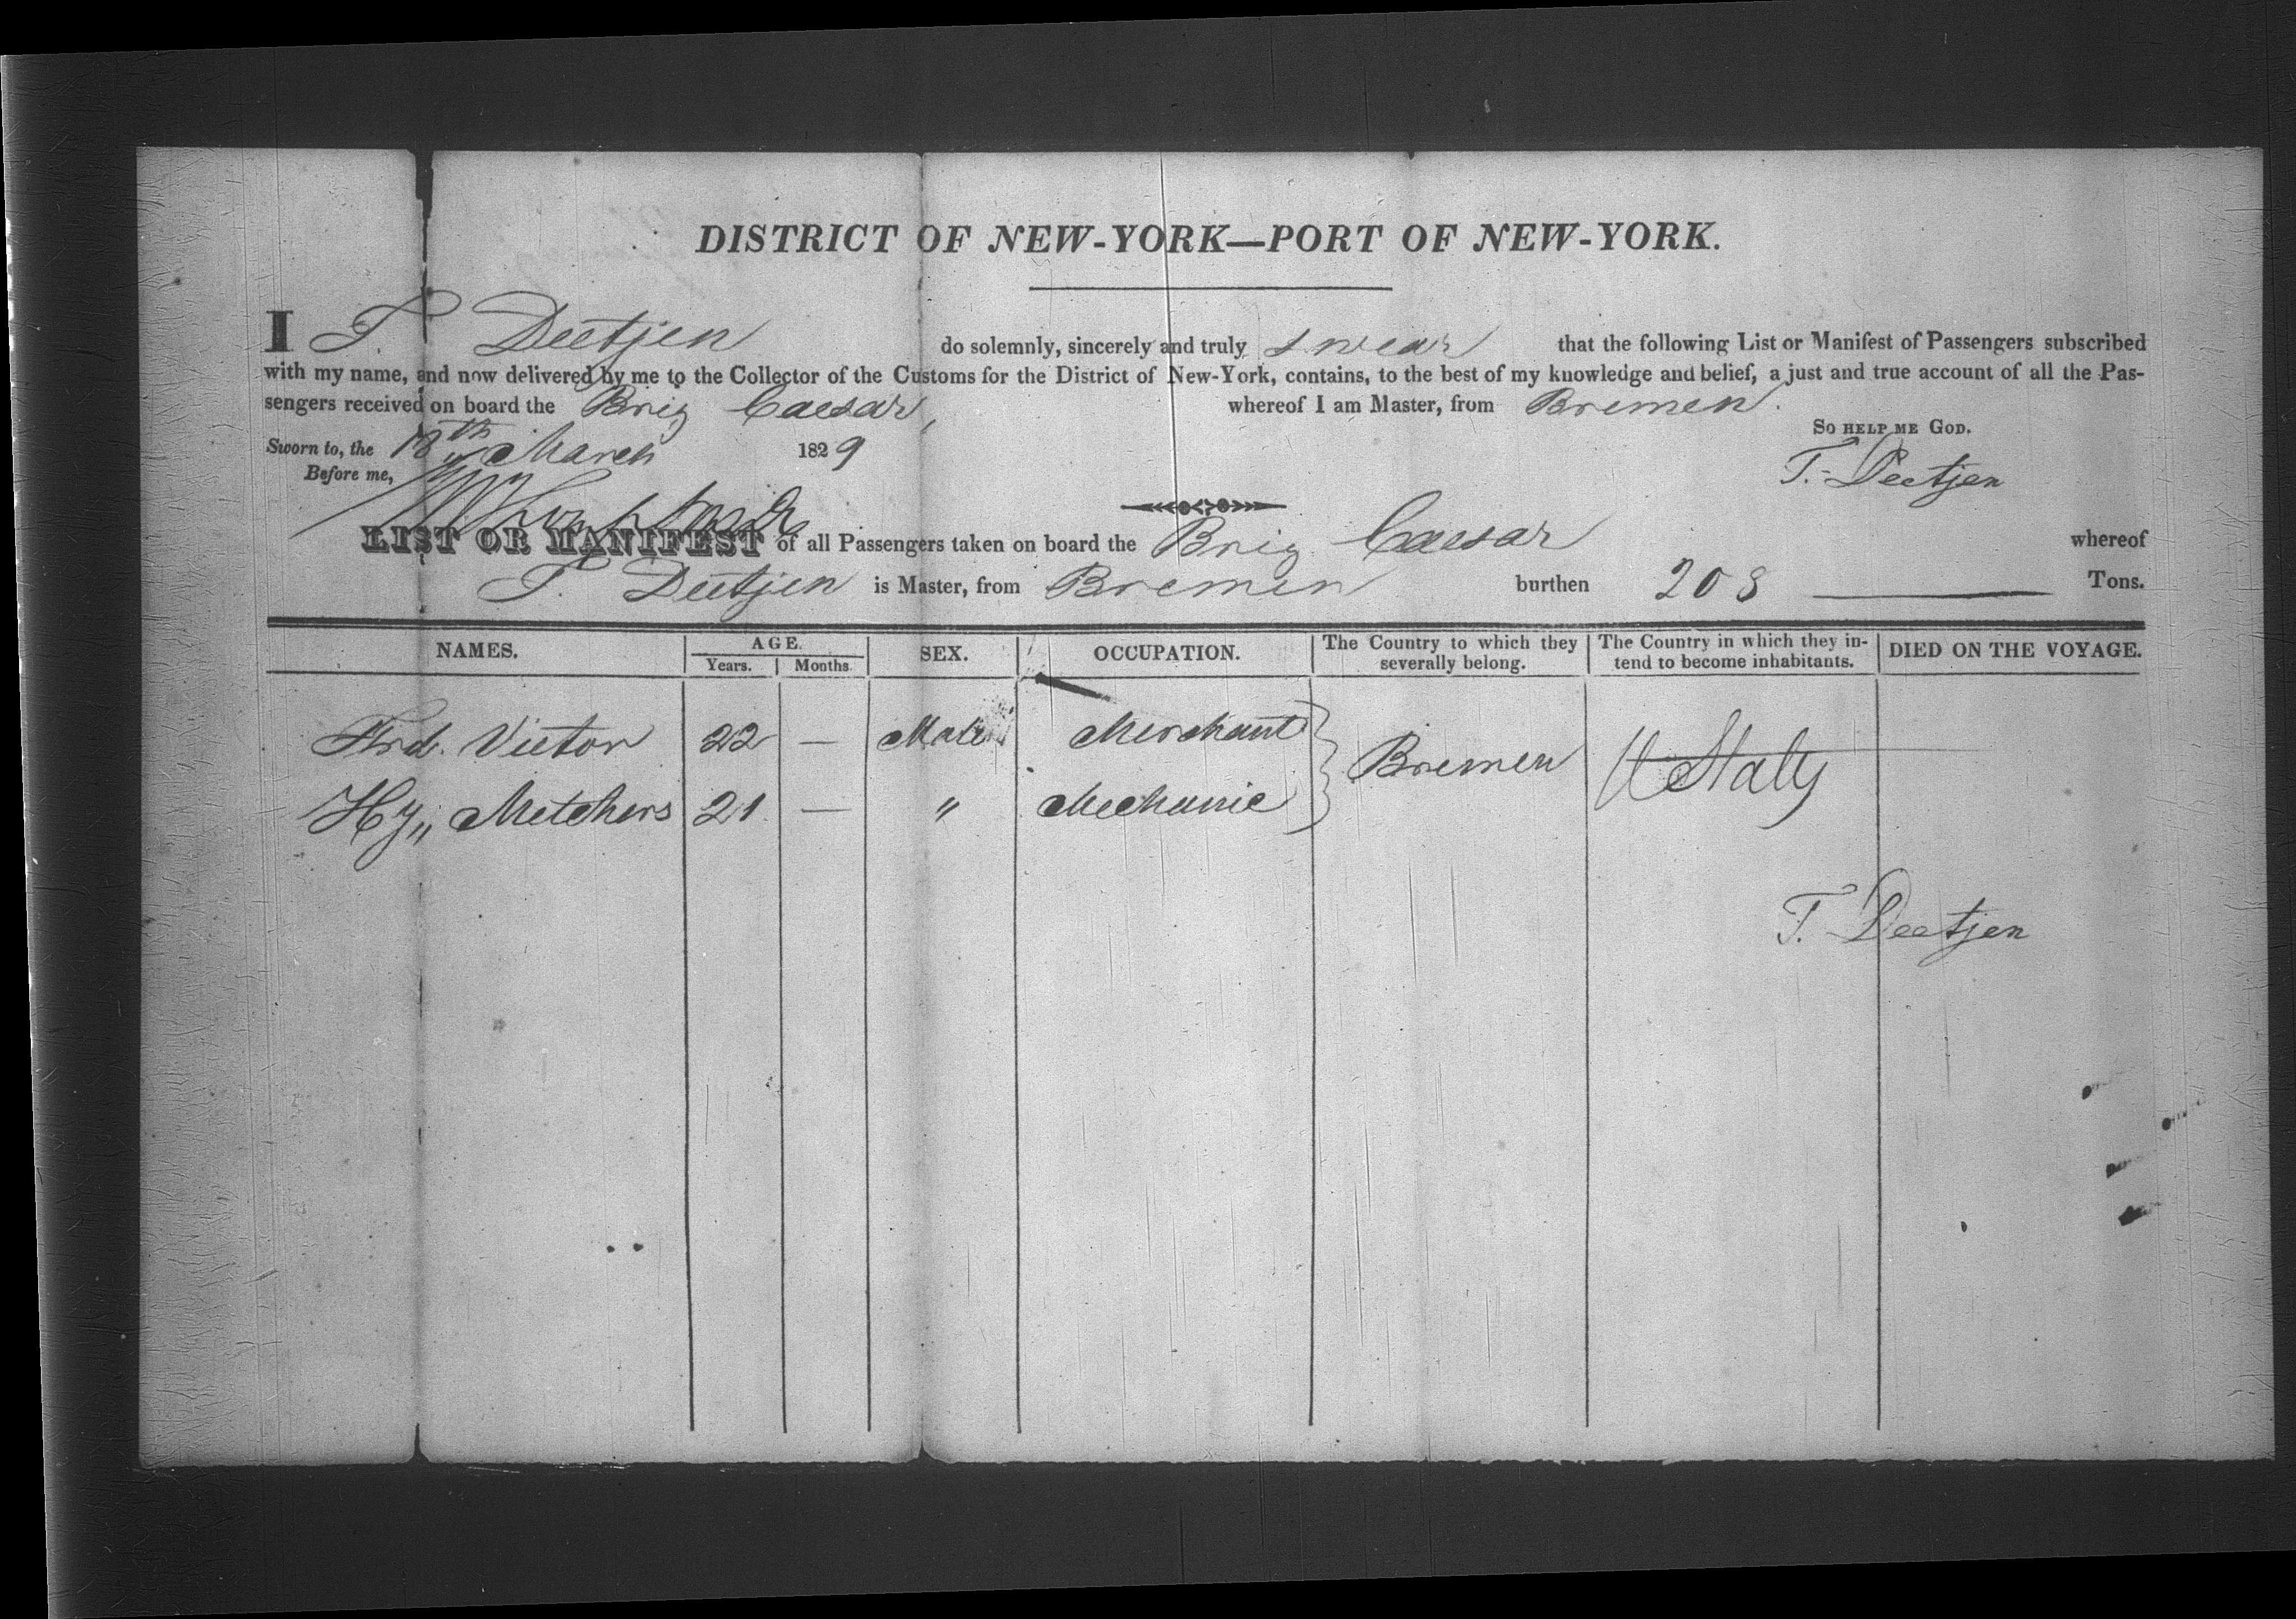 DISTRICT OF NEW-YORK—PORT OF NEW-YORK.
I T. Deetjen do solemnly, sincerely and truly swear that the following List or Manifest of Passengers subscribed
with my name, and now delivered by me to the Collector of the Customs for the District of New-York, contains, to the best of my knowledge and belief, a just and true account of all the Pas-
sengers received on board the Brig Caesar, whereof I am Master, from Bremen.
So HELP ME GOD.
Sworn to, the 18th March 1829
T. Deetjen
Before me,
LIST OR MANIFEST of all Passengers taken on board the Brig Caesar whereof
T. Deetjen is Master, from Bremen burthen 208 Tons.
NAMES. AGE. Years. Months. SEX. OCCUPATION. The Country to which they severally belong. The Country in which they in-tend to become inhabitants. DIED ON THE VOYAGE.
Frd. Victor 22 — Male Merchant
Bremen U Stats
Hy,, Melchers 21 — " Mechanic
T. Deetjen